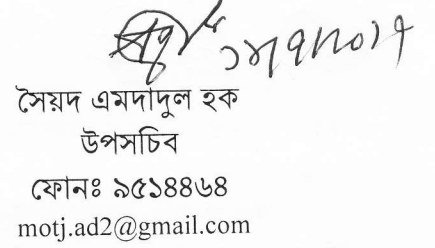 সৈয়দ এমদাদুল হক
উপসচিব
ফোনঃ ৯৫১৪৪৬৪
motj.ad2@gmail.com